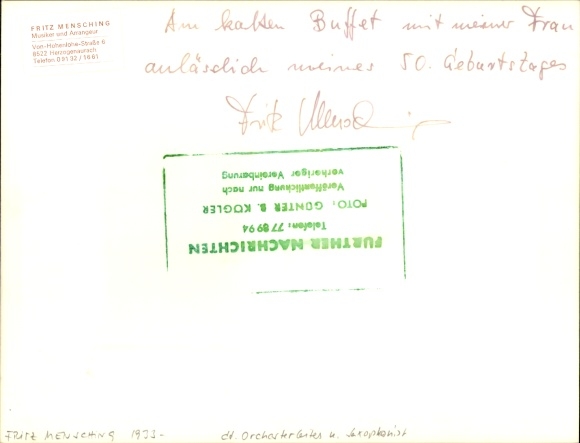 FRITZ MENSCHING
Musiker und Arrangeur
Von-Hohenlohe-Straße 6
8522 Herzogenaurach
Telefon 0 91 32 / 16 61
Am kalten Buffet mit meiner Frau
anläßlich meines 50. Geburtstages
Fritz Mensching
FÜRTHER NACHRICHTEN
Telefon: 77 89 94
FOTO: GÜNTER B. KÖGLER
Veröffentlichung nur nach
vorheriger Vereinbarung
FRITZ MENSCHING 1933 - dt. Orchesterleiter u. Saxophonist